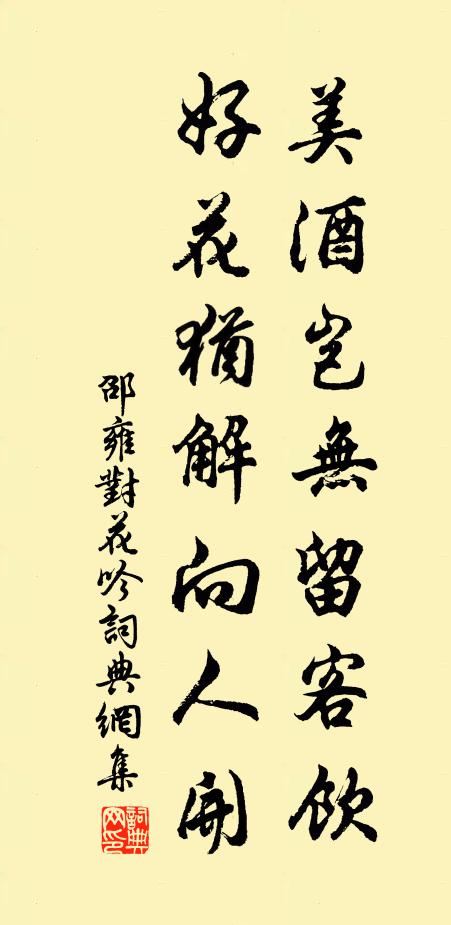 美酒豈無留客飲
好花猶解向人開
邵雍對花吟詞典網集
詞典網印